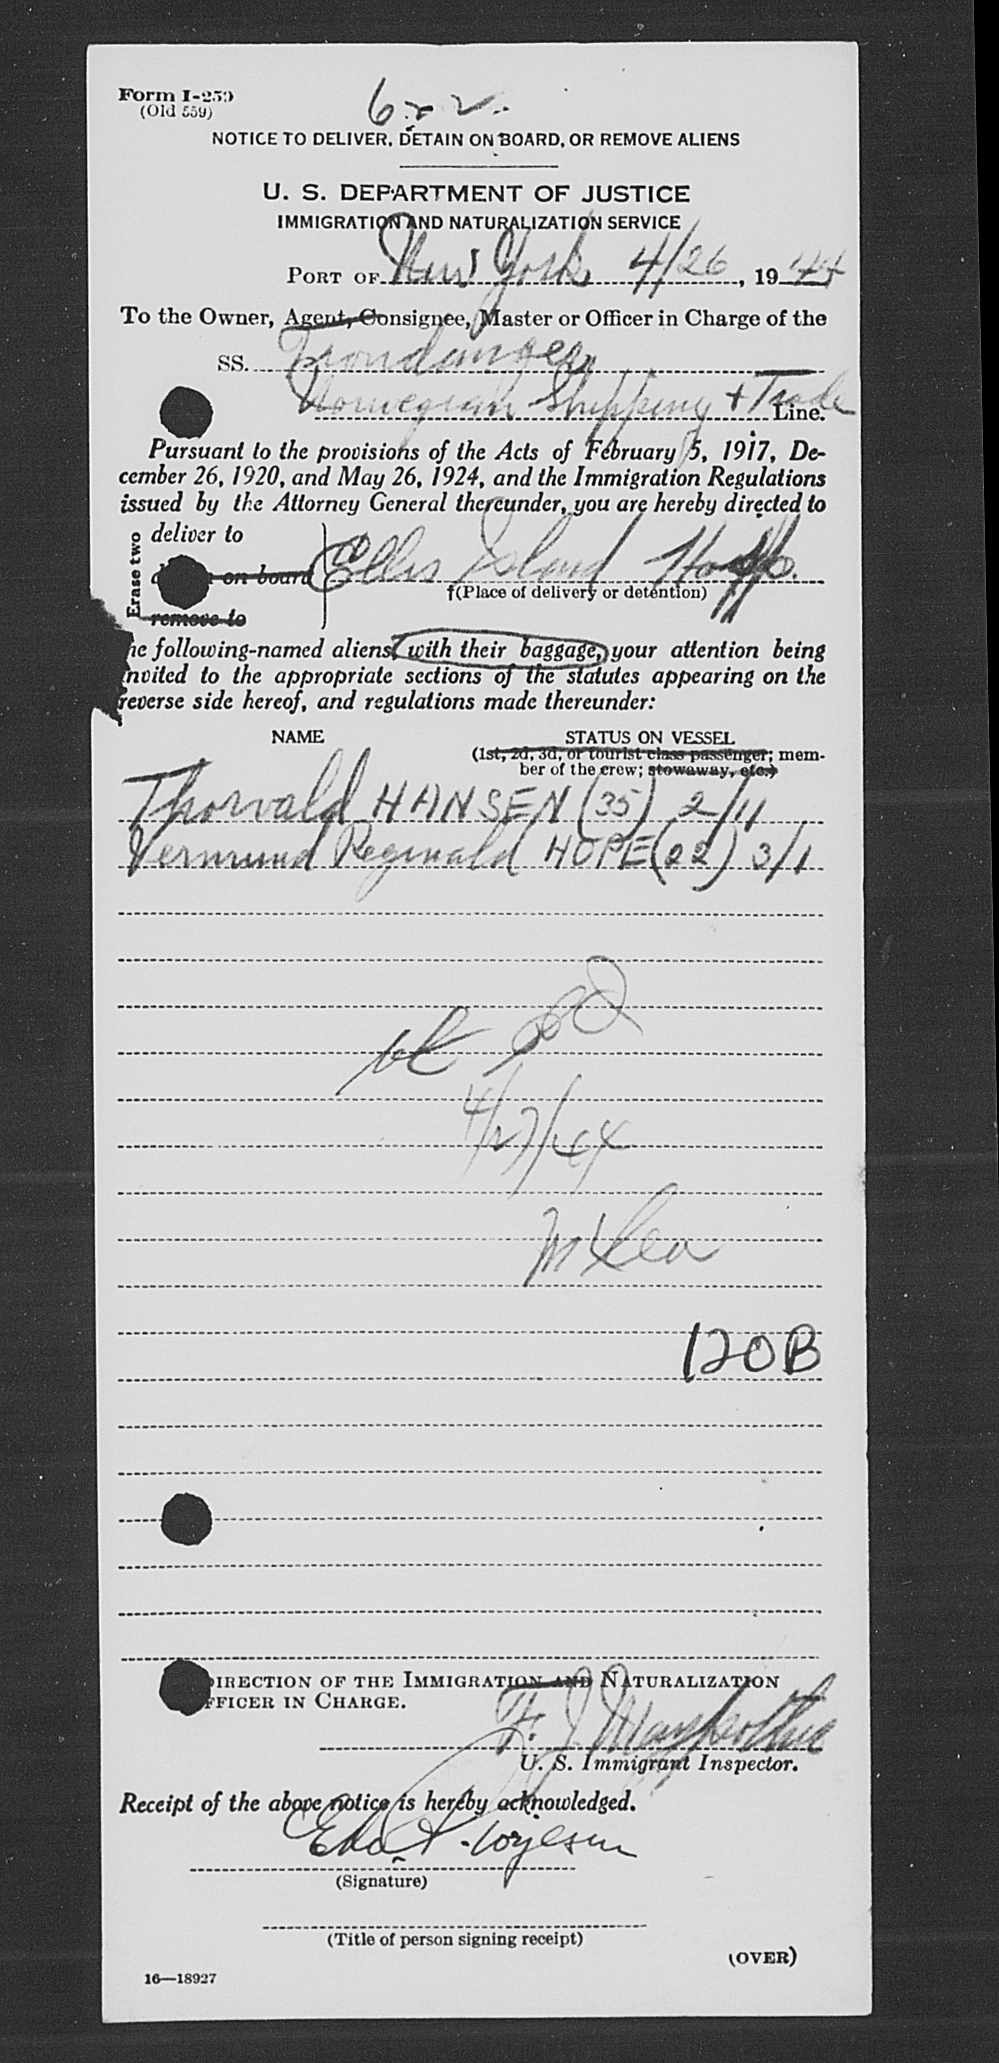 Form I-259
(Old 559)
NOTICE TO DELIVER, DETAIN ON BOARD, OR REMOVE ALIENS
U. S. DEPARTMENT OF JUSTICE
IMMIGRATION AND NATURALIZATION SERVICE
PORT OF New York 4/26, 1944
To the Owner, Agent, Consignee, Master or Officer in Charge of the
SS. Trondanger
Norwegian Shipping + Trade Line.
Pursuant to the provisions of the Acts of February 5, 1917, De-
cember 26, 1920, and May 26, 1924, and the Immigration Regulations
issued by the Attorney General thereunder, you are hereby directed to
Erase two
deliver to
on board Ellis Island Hosp.
†(Place of delivery or detention)
remove to
he following-named aliens, with their baggage, your attention being
nvited to the appropriate sections of the statutes appearing on the
reverse side hereof, and regulations made thereunder:
NAME STATUS ON VESSEL
(1st, 2d, 3d, or tourist class passenger; mem-
ber of the crew; stowaway, etc.)
Thorvald HANSEN (35) 2/11
Vermund Reginald HOPE (22) 3/1
4/27/44
120B
DIRECTION OF THE IMMIGRATION AND NATURALIZATION
FFICER IN CHARGE.
F. J.
U. S. Immigrant Inspector.
Receipt of the above notice is hereby acknowledged.
(Signature)
(Title of person signing receipt)
(OVER)
16—18927